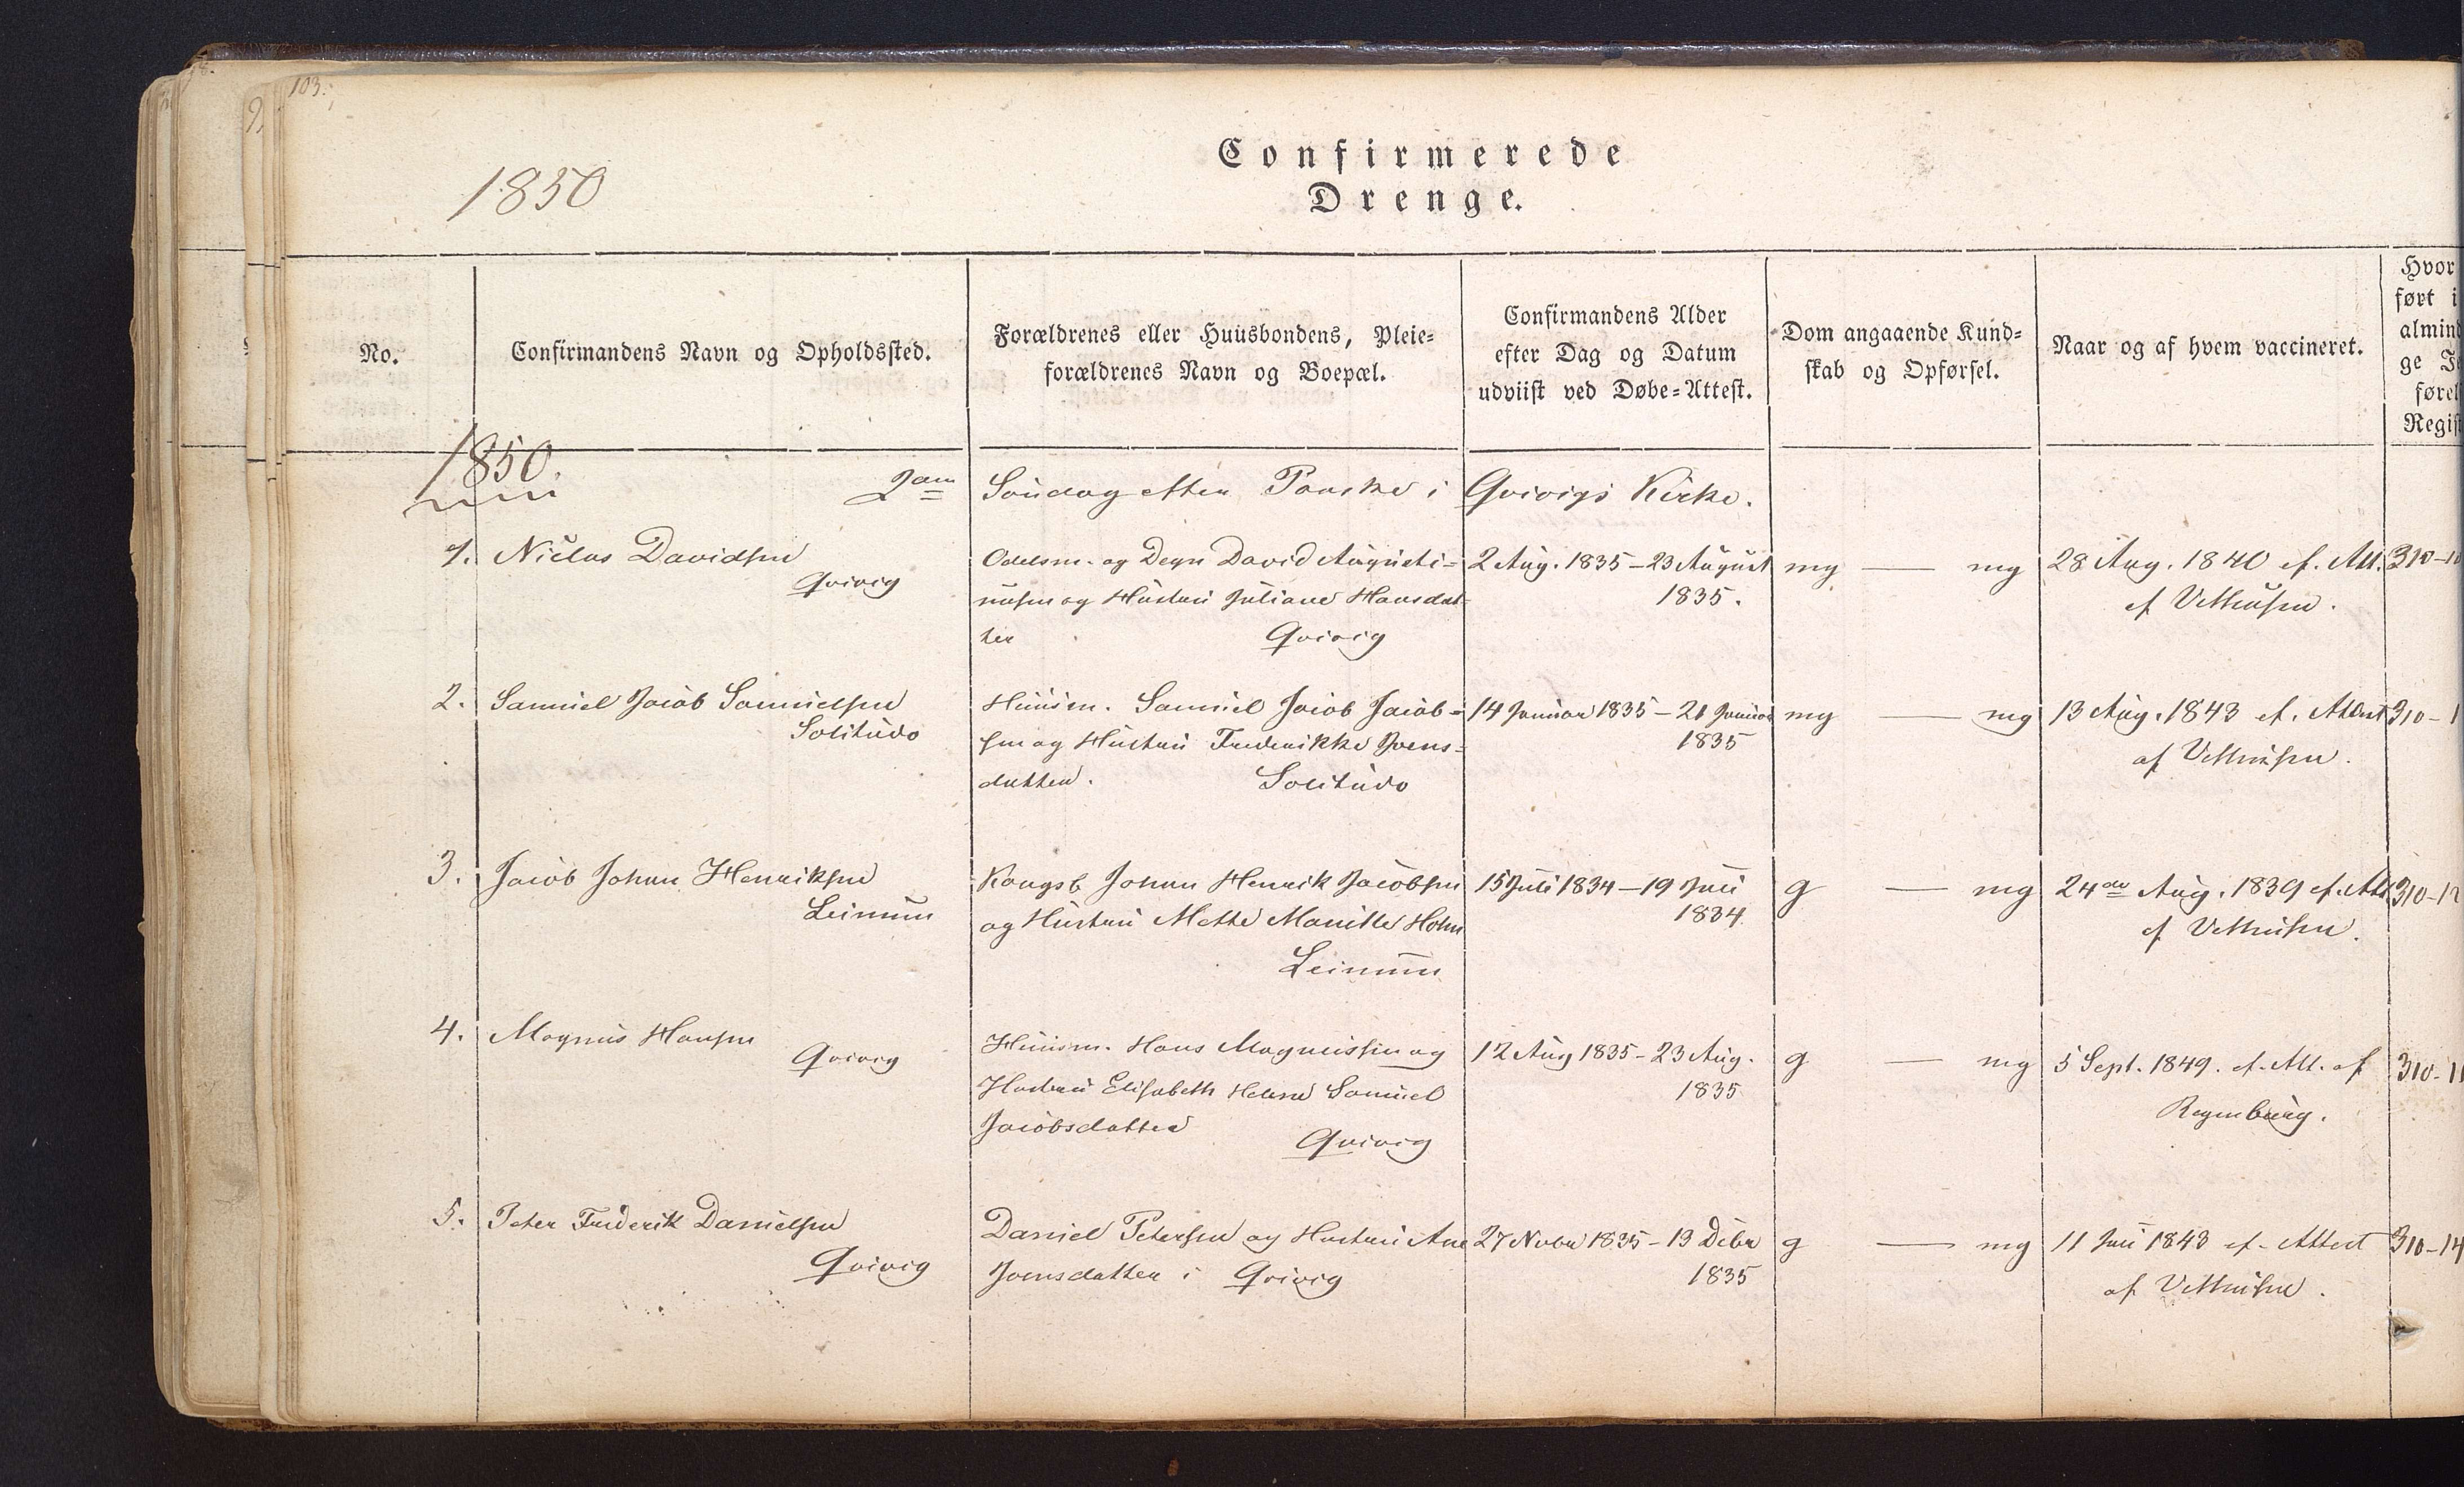 103.
1850
Confirmerede
Drenge.
No.
Confirmandens Navn og Opholdssted.
Forældrenes eller Huusbondens, Pleie=
forældrenes Navn og Boepæl.
Confirmandens Alder
efter Dag og Datum
udviist ved Døbe=Attest.
Dom angaaende Kund=
skab og Opførsel.
Naar og af hvem vaccineret.
Hvor
ført i
almind
ge Je
førel
Regist
1850.
2den Søndag efter Paaske i Qvivigs Kirke.
1. Niclas Davidsen
Qvivig
Odelsm. og Degn David Augusti=
nusen og Hustru Juliane Hansdat=
ter Qvivig
2 Aug. 1835 – 23 August
1835.
mg — mg
28 Aug. 1840 ef. Att.
af
310-10
2. Samuel Jacob Samuelsen
Solitudo
Huusm. Samuel Jacob Jacob=
sen og Hustru Frederikke Joens=
datter. Solitudo
14 Januar 1835 – 21 Januar
1835
mg — mg
13 Aug. 1843 ef. Attest
af
310-1
3. Jacob Johan Henriksen
Leinum
Kongsb Johan Henrik Jacobsen
og Hustru Mette Marie Holm
Leinum
15 Juli 1834 – 19 Juli
1834.
g — mg
24de Aug. 1839 ef. Att
af
310-12
4. Magnus Hansen
Qvivig
Huusm. Hans Magnussen og
Hustru Elisabeth Helene Samuel
Jacobsdatter
Qvivig
12 Aug 1835 – 23 Aug.
1835
g — mg
5 Sept. 1849. ef. Att. af
Regenburg.
310-1
5. Peter Frederik Danielsen
Qvivig
Daniel Petersen og Hustru Ane
Joensdatter i Qvivig
27 Novbr 1835 – 13 Debr
1835
g — mg
11 Juli 1843 ef. Attest
af
310-14